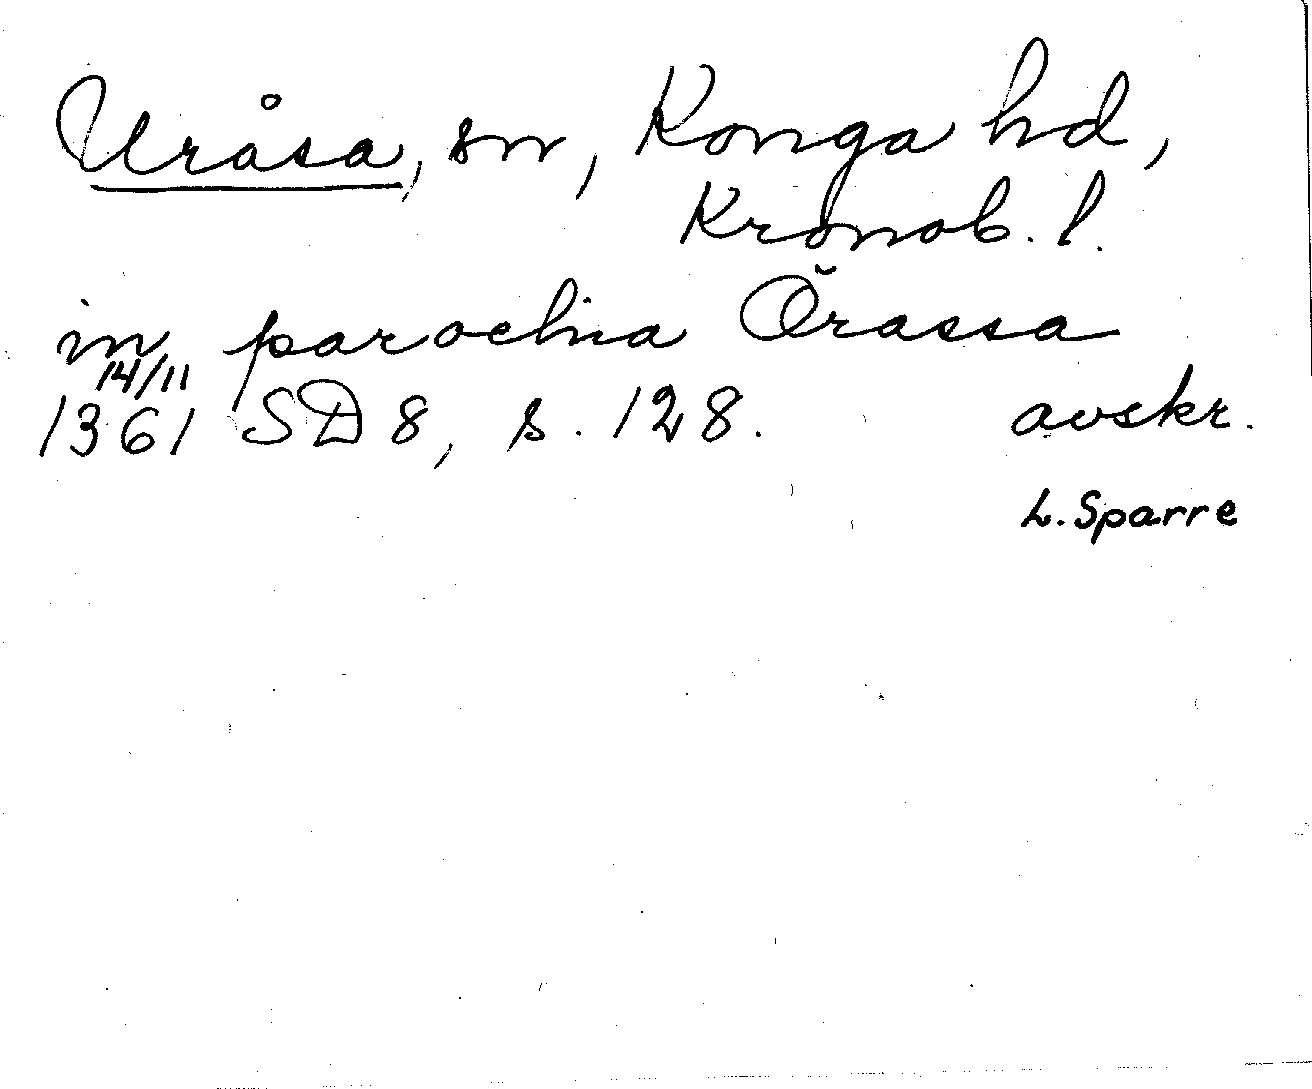 Uråsa, sn, Konga hd,
Kronob. l.
in parochia Ŏrassa
14/11
1361 SD 8, s. 128. avskr.
L. Sparre